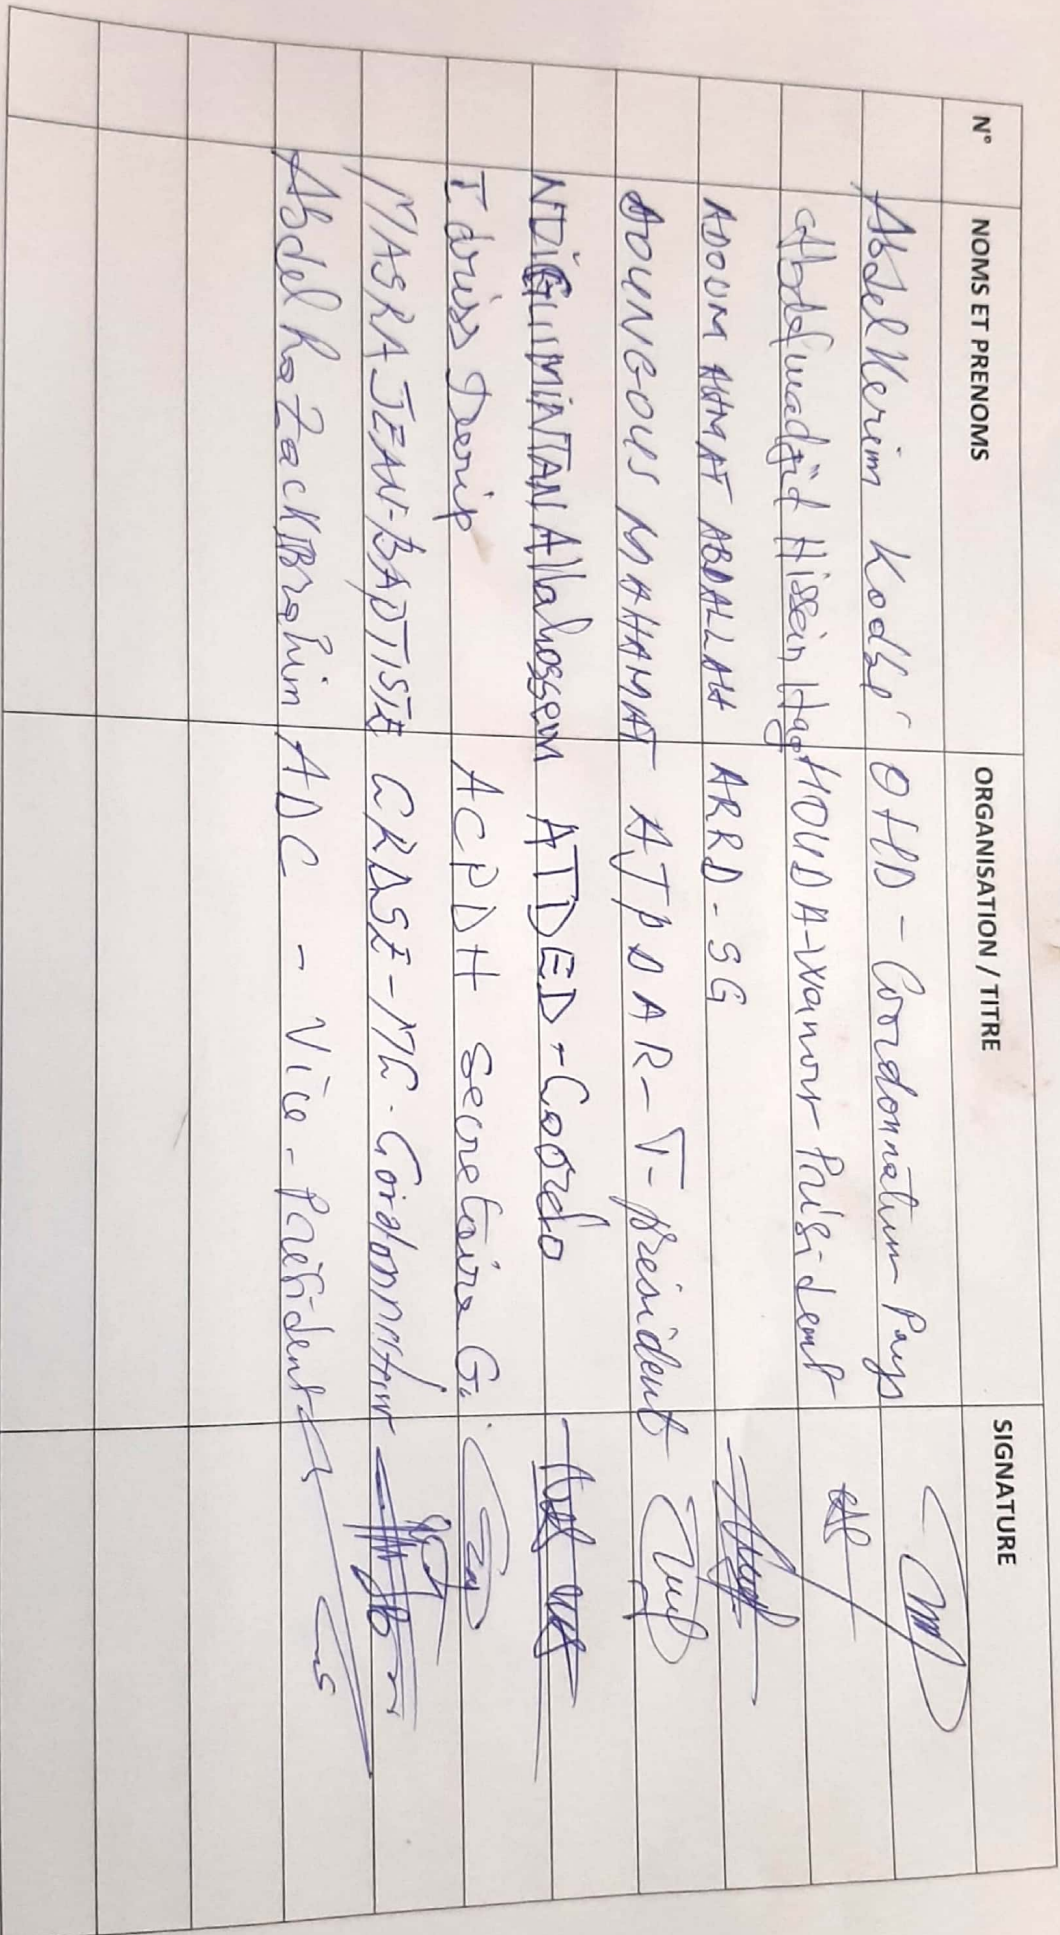 N° NOMS ET PRENOMS ORGANISATION / TITRE SIGNATURE
Abdelkerim Kodbé OHD - Coordonnateur Pays
Abdelmadjid Hissein Hag HOUDA-Wanour Président
ADOUM AHMAT ABDALLAH ARRD - SG
DOUNGOUS MAHAMAT ATPDAR-T- président
NDIGUIMINTAN Allahossem ATDED - Coordo
Idriss Deorip ACPDH Secretaire G.
MASRA JEAN-BAPTISTE CRASE-MC. Coordonnateur
Abdel Razack Ibrahim ADC - Vice-Président